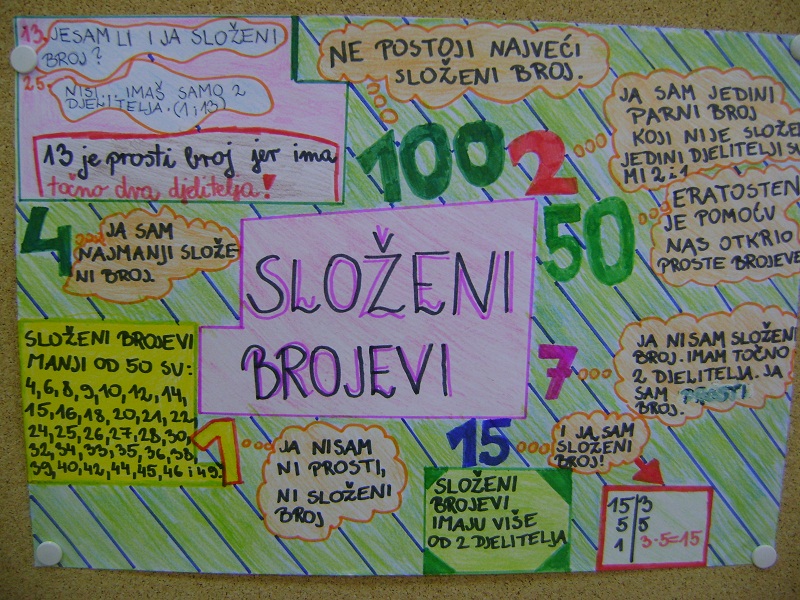 13. JESAM LI I JA SLOŽENI
BROJ?
25. NISI... IMAŠ SAMO 2
DJELITELJA. (1 i 13)
13 je prosti broj jer ima
točno dva djelitelja!
NE POSTOJI NAJVEĆI
SLOŽENI BROJ.
100
2
JA SAM JEDINI
PARNI BROJ
KOJI NIJE SLOŽE
JEDINI DJELITELJI SU
MI 2 i 1
4
JA SAM
NAJMANJI SLOŽE
NI BROJ
50
ERATOSTEN
JE POMOĆU
NAS OTKRIO
PROSTE BROJEVE
SLOŽENI
BROJEVI
SLOŽENI BROJEVI
MANJI OD 50 SU:
4, 6, 8, 9, 10, 12, 14,
15, 16, 18, 20, 21, 22
24, 25, 26, 27, 28, 30,
32, 34, 33, 35, 36, 38,
39, 40, 42, 44, 45, 46 i 49.
7
JA NISAM SLOŽENI
BROJ. IMAM TOČNO
2 DJELITELJA. JA
SAM PROSTI
BROJ.
1
JA NISAM
NI PROSTI,
NI SLOŽENI
BROJ
15
I JA SAM
SLOŽENI
BROJ!
SLOŽENI
BROJEVI
IMAJU VIŠE
OD 2 DJELITELJA
15 3
5 5
1 3·5=15